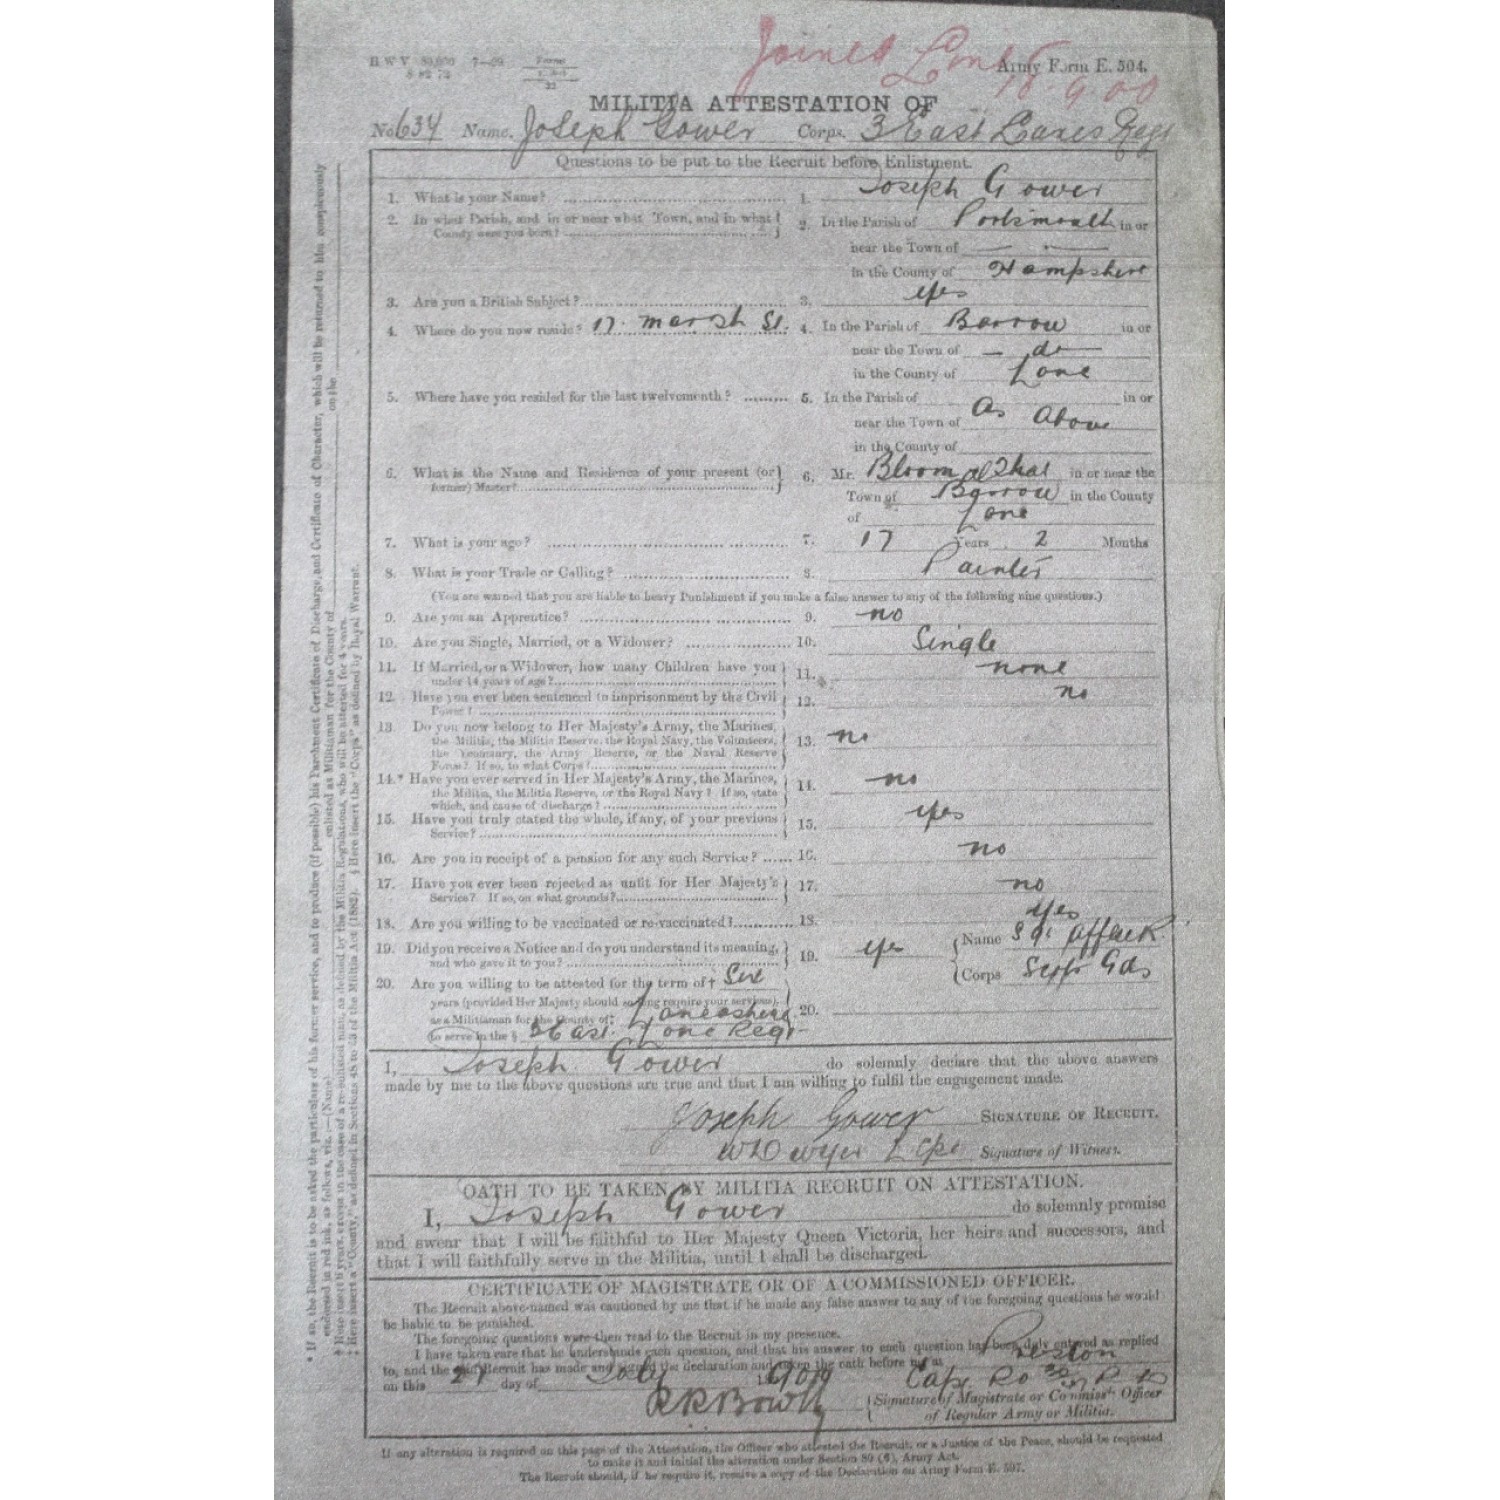 H W V 50,000 7—99 Forms
Joined
Army Form E. 504.
18.9.00
MILITIA ATTESTATION OF
No 634 Name. Joseph Gower Corps. 3 East Lancs Regt
Questions to be put to the Recruit before Enlistment.
1. What is your Name? 1. Joseph Gower
2. In what Parish, and in or near what Town, and in what County were you born? 2. In the Parish of Portsmouth in or
near the Town of — —
in the County of Hampshire
3. Are you a British Subject? 3. yes
4. Where do you now reside? 17. marsh St. 4. In the Parish of Barrow in or
near the Town of — do —
in the County of Lanc
5. Where have you resided for the last twelvemonth? 5. In the Parish of in or
near the Town of As Above
in the County of
6. What is the Name and Residence of your present (or 6. Mr. in or near the
former) Master? Town of Barrow in the County
of Lanc
7. What is your age? 7. 17 Years 2 Months
8. What is your Trade or Calling? 8. Painter
(You are warned that you are liable to heavy Punishment if you make a false answer to any of the following nine questions.)
9. Are you an Apprentice? 9. no
10. Are you Single, Married, or a Widower? 10. Single
11. If Married, or a Widower, how many Children have you 11. none
under 14 years of age?
12. Have you ever been sentenced to imprisonment by the Civil 12. no
Power?
13. Do you now belong to Her Majesty's Army, the Marines, 13. no
the Militia, the Militia Reserve, the Royal Navy, the Volunteers,
the Yeomanry, the Army Reserve, or the Naval Reserve
Force? If so, to what Corps?
14.* Have you ever served in Her Majesty's Army, the Marines, 14. no
the Militia, the Militia Reserve, or the Royal Navy? If so, state
which, and cause of discharge?
15. Have you truly stated the whole, if any, of your previous 15. yes
Service?
16. Are you in receipt of a pension for any such Service? 16. no
17. Have you ever been rejected as unfit for Her Majesty's 17. no
Service? If so, on what grounds?
18. Are you willing to be vaccinated or re-vaccinated? 18. yes
19. Did you receive a Notice and do you understand its meaning, 19. yes Name
and who gave it to you? Corps Gds
20. Are you willing to be attested for the term of† Six
years (provided Her Majesty should so long require your services),
as a Militiaman for the County of‡ Lancashire 20.
to serve in the § 3 East. Lanc Regt
I, Joseph Gower do solemnly declare that the above answers
made by me to the above questions are true and that I am willing to fulfil the engagement made.
Joseph Gower SIGNATURE OF RECRUIT.
Signature of Witness.
OATH TO BE TAKEN BY MILITIA RECRUIT ON ATTESTATION.
I, Joseph Gower do solemnly promise
and swear that I will be faithful to Her Majesty Queen Victoria, her heirs and successors, and
that I will faithfully serve in the Militia, until I shall be discharged.
CERTIFICATE OF MAGISTRATE OR OF A COMMISSIONED OFFICER.
The Recruit above-named was cautioned by me that if he made any false answer to any of the foregoing questions he would
be liable to be punished.
The foregoing questions were then read to the Recruit in my presence.
I have taken care that he understands each question, and that his answer to each question has been duly entered as replied
to, and the said Recruit has made and signed the declaration and taken the oath before me at Preston
on this 21 day of July 1900
Signature of Magistrate or Commissd. Officer
of Regular Army or Militia.
If any alteration is required on this page of the Attestation, the Officer who attested the Recruit, or a Justice of the Peace, should be requested
to make it and initial the alteration under Section 80 (6), Army Act.
The Recruit should, if he require it, receive a copy of the Declaration on Army Form E. 507.
* If so, the Recruit is to be asked the particulars of his former service, and to produce (if possible) his Parchment Certificate of Discharge, and Certificate of Character, which will be returned to him conspicuously
endorsed in red ink, as follows, viz.:—(Name) enlisted as Militiaman for the County of on the
† Here insert 6 years, except in the case of a re-enlisted man, as defined by the Militia Regulations, who will be attested for 4 years.
‡ Here insert a "County," as defined in Sections 48 to 53 of the Militia Act (1882). § Here insert the "Corps" as defined by Royal Warrant.